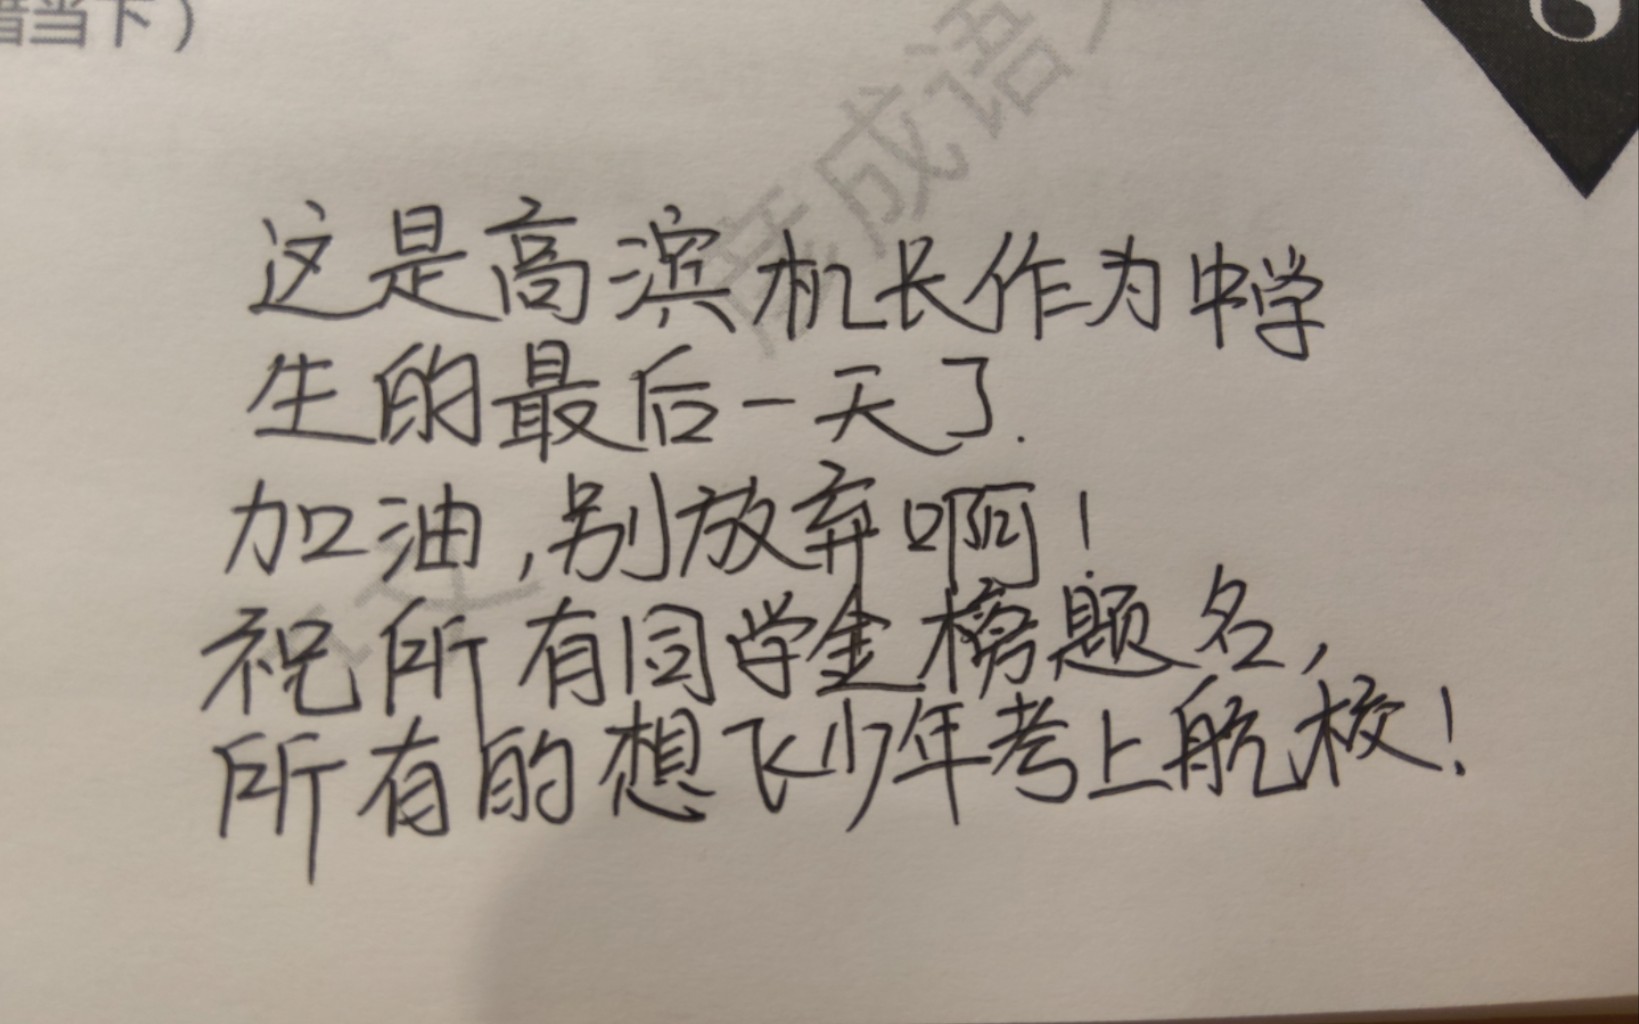 惜当下）
成语
8
这是高滨机长作为中学
生的最后一天了.
加油,别放弃啊!
祝所有同学金榜题名,
所有的想飞少年考上航校!